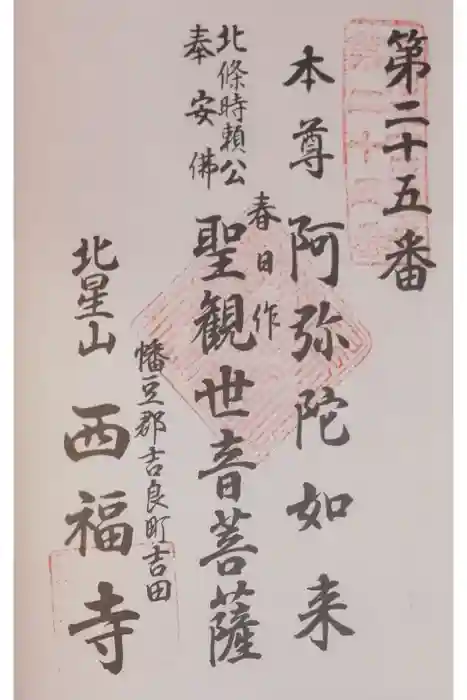 第二十五番
本尊阿弥陀如来
春日作
聖観世音菩薩
北條時頼公
奉安佛
幡豆郡吉良町吉田
北星山西福寺